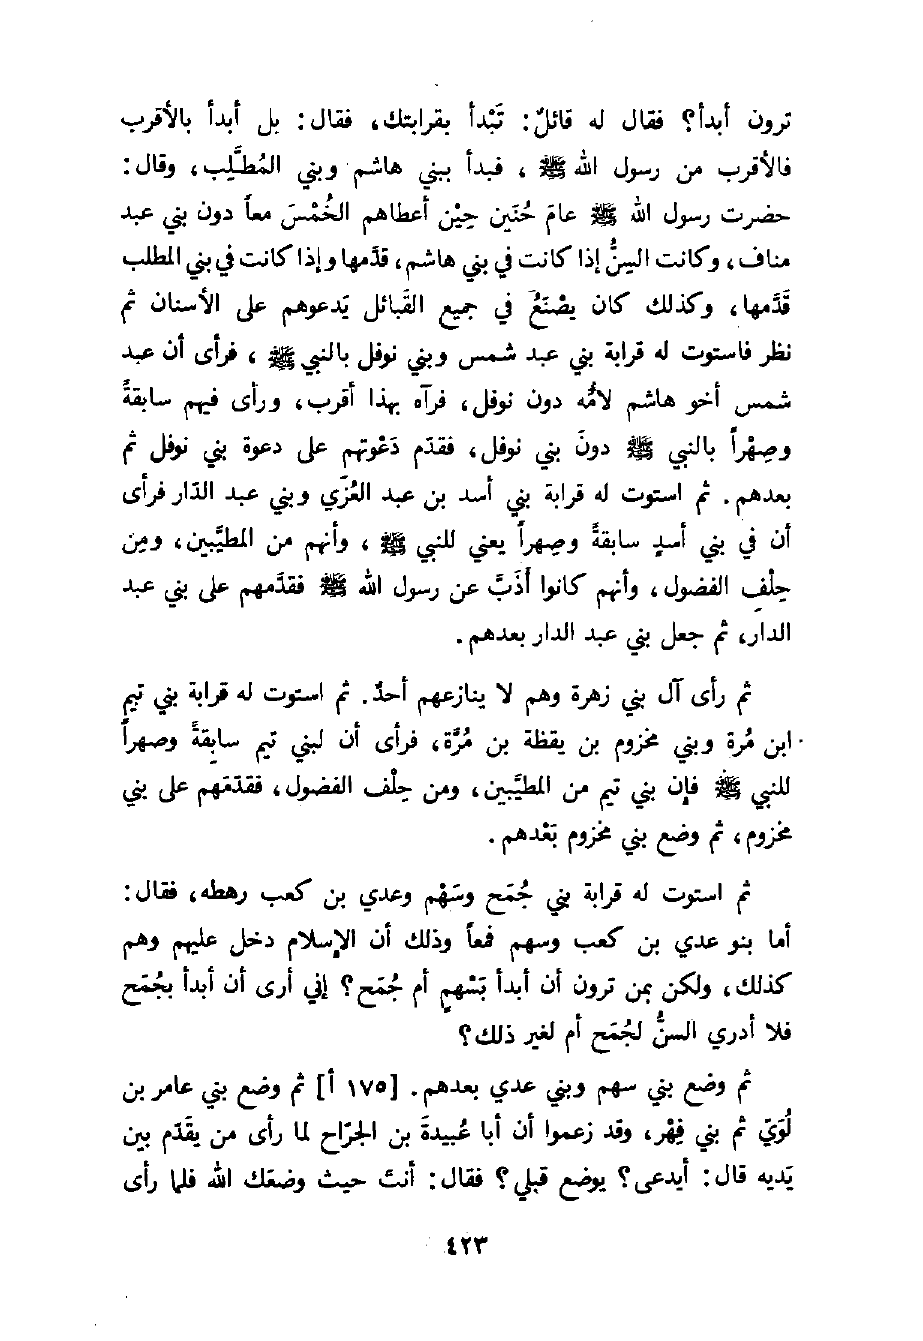 ترون أبدأ؟ فقال له قائلٌ: تَبْدأ بقرابتك، فقال: بل أبدأ بالأقرب
فالأقرب من رسول الله ﷺ ، فبدأ ببني هاشم وبني المُطَّلِب، وقال:
حضرت رسول الله ﷺ عامَ حُنَين حِيْن أعطاهم الخُمْسَ معاً دون بني عبد
مناف، وكانت السِنُّ إذا كانت في بني هاشم، قدَّمها وإذا كانت في بني المطلب
قَدَّمها، وكذلك كان يصْنَعُ في جميع القَبائل يَدعوهم على الأسنان ثم
نظر فاستوت له قرابة بني عبد شمس وبني نوفل بالنبي ﷺ ، فرأى أن عبد
شمس أخو هاشم لأمُّه دون نوفل، فرآه بهذا أقرب، ورأى فيهم سابقةً
وصِهْراً بالنبي ﷺ دونَ بني نوفل، فقدَم دَعْوتهم على دعوة بني نوفل ثم
بعدهم. ثم استوت له قرابة بني أسد بن عبد العُزَّي وبني عبد الدّار فرأى
أن في بني أسدٍ سابقةً وصِهراً يعني للنبي ﷺ ، وأنهم من المطيَّبين، ومِن
حِلْفِ الفضول، وأنهم كانوا أَذَبَّ عن رسول الله ﷺ فقدَّمهم على بني عبد
الدار، ثم جعل بني عبد الدار بعدهم.
ثم رأى آل بني زهرة وهم لا ينازعهم أحدٌ. ثم استوت له قرابة بني تيم
ابن مُرة وبني مخزوم بن يقظة بن مُرَّة، فرأى أن لبني تيم سابقةً وصهراً
للنبي ﷺ فإن بني تيم من المطيَّبين، ومن حِلْف الفضول، فقدّمَهم على بني
مخزوم، ثم وضع بني مخزوم بَعْدهم.
ثم استوت له قرابة بني جُمَح وسَهْم وعدي بن كعب رهطه، فقال:
أما بنو عدي بن كعب وسهم فمعاً وذلك أن الإسلام دخل عليهم وهم
كذلك، ولكن بمن ترون أن أبدأ بَسْهمٍ أم جُمَح؟ إني أرى أن أبدأ بجُمَح
فلا أدري السنُّ لجُمَح أم لغير ذلك؟
ثم وضع بني سهم وبني عدي بعدهم. [١٧٥ أ] ثم وضع بني عامر بن
لُوَيّ ثم بني فِهْر، وقد زعموا أن أبا عُبيدةَ بن الجرّاح لما رأى من يقَدّم بين
يَديه قال: أيدعى؟ يوضع قبلي؟ فقال: أنتَ حيث وضعَك الله فلما رأى
٤٢٣